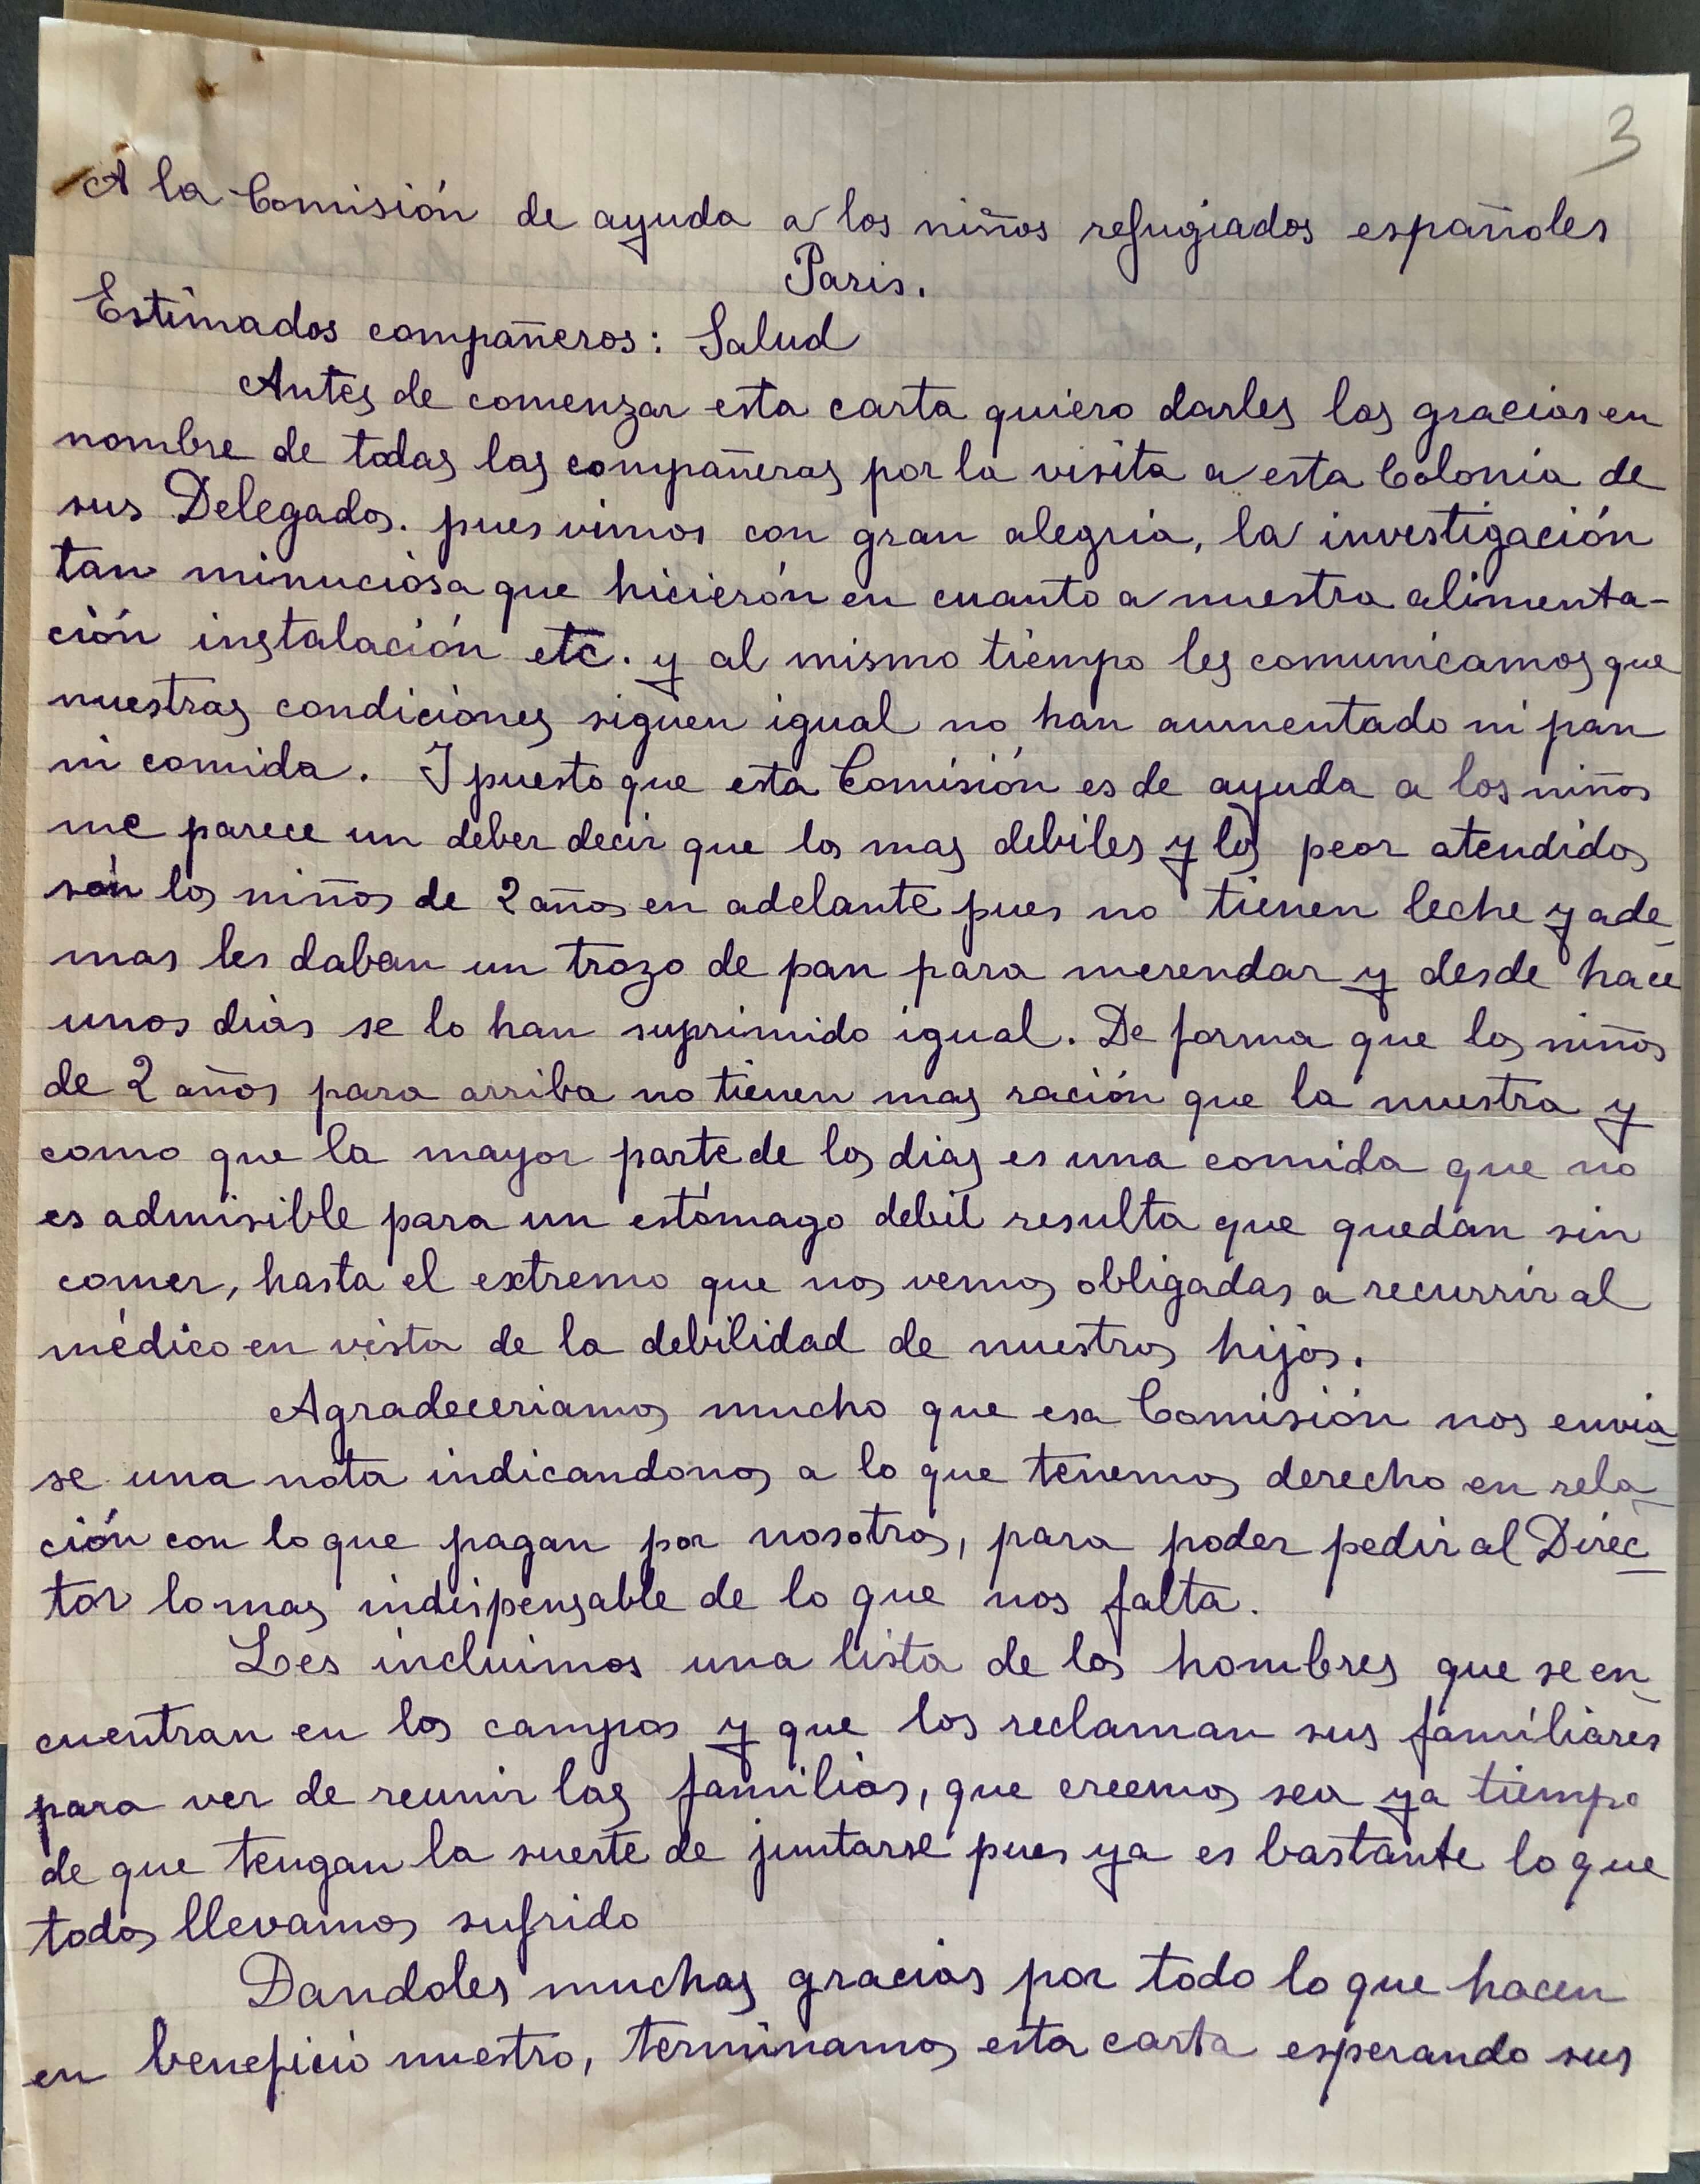 3
A la Comisión de ayuda a los niños refugiados españoles
Paris.
Estimados compañeros: Salud
Antes de comenzar esta carta quiero darles las gracias en
nombre de todas las compañeras por la visita a esta Colonia de
sus Delegados. pues vimos con gran alegria, la investigación
tan minuciosa que hicierón en cuanto a nuestra alimenta-
ción instalación etc. y al mismo tiempo les comunicamos que
nuestras condiciónes siguen igual no han aumentado ni pan
ni comida. I puesto que esta Comisión es de ayuda a los niños
me parece un deber decir que los mas debiles y los peor atendidos
són los niños de 2 años en adelante pues no tienen leche y ade-
mas les daban un trozo de pan para merendar y desde hace
unos dias se lo han suprimido igual. De forma que los niños
de 2 años para arriba no tienen mas ración que la nuestra y
como que la mayor parte de los dias es una comida que no
es admisible para un estómago debil resulta que quedan sin
comer, hasta el extremo que nos vemos obligadas a recurrir al
médico en vista de la debilidad de nuestros hijos.
Agradeceriamos mucho que esa Comisión nos envia-
se una nota indicandonos a lo que tenemos derecho en rela-
ción con lo que pagan por nosotros, para poder pedir al Direc-
tor lo mas indispensable de lo que nos falta.
Les incluimos una lista de los hombres que se en-
cuentran en los campos y que los reclaman sus familiares
para ver de reunir las familias, que creemos sea ya tiempo
de que tengan la suerte de juntarse pues ya es bastante lo que
todos llevamos sufrido
Dandoles muchas gracias por todo lo que hacen
en beneficio nuestro, terminamos esta carta esperando sus